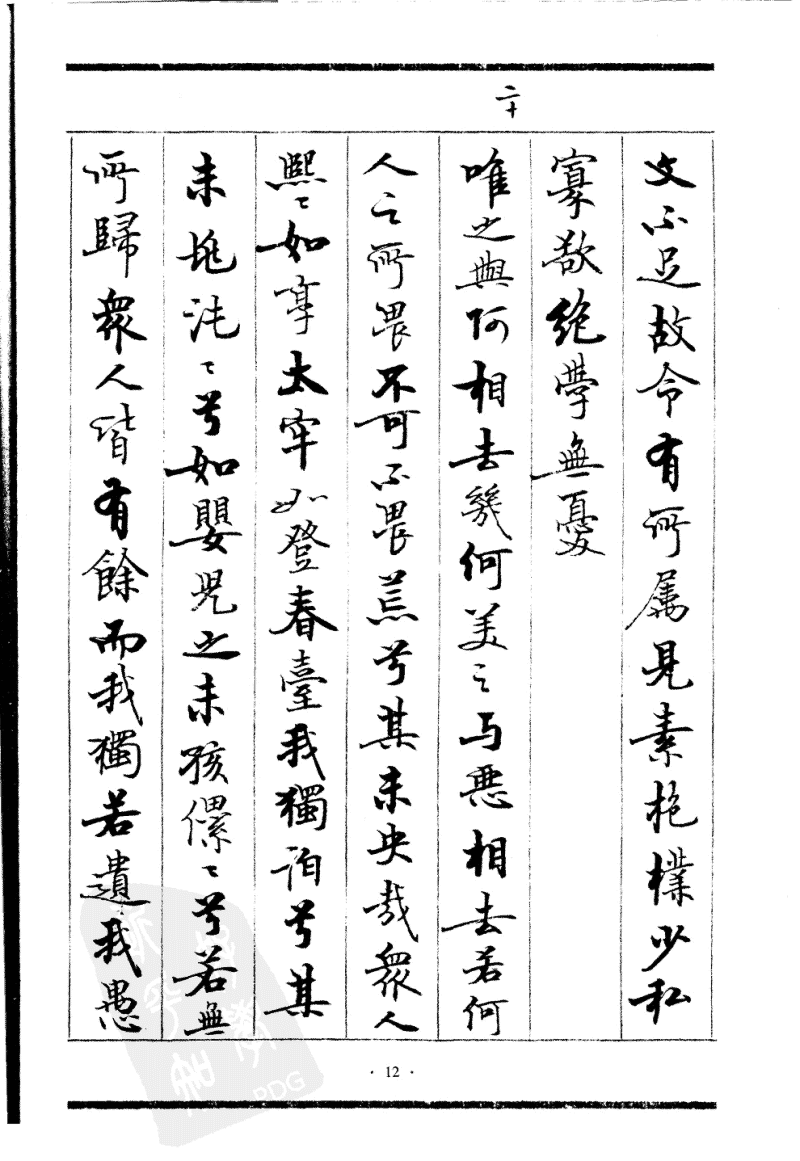 二十
文不足故令有所属見素抱樸少私
寡欲絶學無憂
唯之與阿相去幾何美之与惡相去若何
人之所畏不可不畏荒兮其未央哉衆人
熙〻如享太牢如登春臺我獨泊兮其
未兆沌〻兮如嬰児之未孩儽〻兮若無
所歸衆人皆有餘而我獨若遺我愚
· 12 ·
PDG